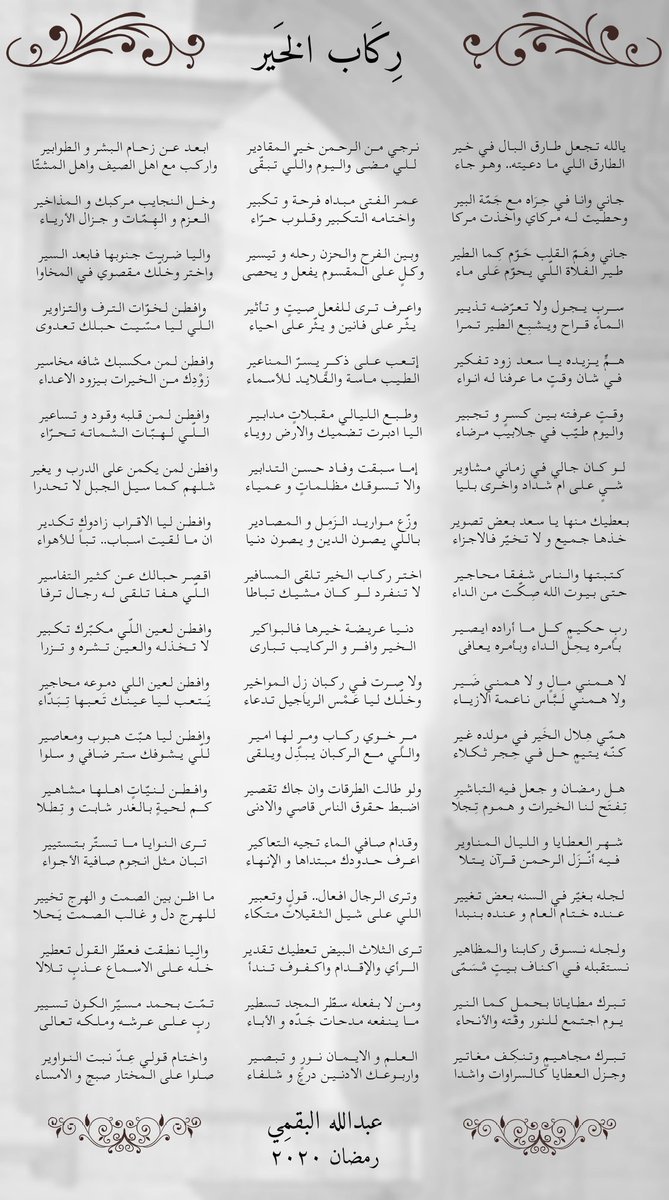 رِكَاب الخَير
يالله تجعل طارق البال في خير
الطارق اللي ما دعيته.. وهو جاء
جاني وانا في حِزاه مع جَمّة البير
وحطّيت له مركاي واخذت مركا
جاني وهَمّ القلب حَوّم كِما الطير
طير الفلاة اللّي يحوّم عَلى ماء
سربٍ يجول ولا تعرّضه تذيير
الماء قراح ويشبع الطير تمرا
همٍّ يزيده يا سعد زود تفكير
في شان وقتٍ ما عرفنا له انواء
وقتٍ عرفته بين كسرٍ و تجبير
واليوم طيّب في جلابيب مرضاء
لو كان جالي في زماني مشاوير
شيٍ على ام شداد واخرى بليا
بعطيك منها يا سعد بعض تصوير
خذها جميع و لا تخيّر فالاجزاء
كتبتها والناس شفقا محاجير
حتى بيوت الله صِكّت من الداء
ربٍ حكيمٍ كل ما أراده ايصير
بأمره يحِلّ الداء وبأمره يعافى
لا همني مالٍ و لا همني ضَير
ولا همني لبّاس ناعمة الازياء
همّي هِلال الخَير في مولده غير
كنّه يتيمٍ حل في حِجر ثكلاء
هل رمضان و جعل فيه التباشير
تِفتَح لنا الخيرات و هموم تِجلا
شهر العطايا و الليال المناوير
فيه أنْزَل الرحمن قرآن يتلا
لجله بغيّر في السنه بعض تغيير
عنده ختام العام و عنده بنبدا
ولجله نسوق ركابنا والمظاهير
نستقبله في اكناف بيتٍ مْسَمّى
تبرك مطايانا بحمل كما النير
يوم اجتمع للنور وقته والانحاء
تبرك مجاهيمٍ وتنكف مغاتير
وجزل العطايا كالسراوات واشدا
نرجي من الرحمن خير المقادير
للي مضى واليوم واللّي تبقّى
عمر الفتى مبداه فرحة و تكبير
واختامه التكبير وقلوب حرّاء
وبين الفرح والحزن رحله و تيسير
وكلٍ على المقسوم يفعل و يحصى
واعرف ترى للفعل صيتٍ و تأثير
يثْر على فانين و يثْر على احياء
إتعب على ذكرٍ يسرّ المناعير
الطيب ماسة والقلايد للأسماء
وطبع الليالي مقبلاتٍ مدابير
اليا ادبرت تضميك والارض رویاء
إما سبقت وفاد حسن التدابير
والا تسوقك مظلماتٍ و عمياء
وزّع مواريد الزمل و المصادير
باللي يصون الدين و يصون دنيا
اختر ركاب الخير تلقى المسافير
لا تنفرد لو كان مشيك تباطا
دنيا عريضة خيرها فالبواكير
الخير وافر و الركايب تبارى
ولا صرت في ركبان زل المواخير
وخلّك ليا غمْس الرياجيل تدعاء
مر خوي ركاب ومر لها امير
واللّي مع الركبان يبذل ويلقى
ولو طالت الطرقات وان جاك تقصير
اضبط حقوق الناس قاصي والادنى
وقدام صافي الماء تجيه التعاكير
اعرف حدودك مبتداها و الإنهاء
وترى الرجال افعال.. قولٍ وتعبير
اللي على شيل الثقيلات متكاء
ترى الثلاث البيض تعطيك تقدير
الرأي والإقدام واكفوف تندأ
ومن لا بفعله سطّر المجد تسطير
ما ينفعه مدحات جَدّه و الآباء
العلم و الايمان نورٍ و تبصير
واربوعك الادنين درعٍ و شلفاء
ابعد عن زحام البشر و الطوابير
واركب مع اهل الصيف واهل المشتّا
وخل النجايب مركبك و المذاخير
العزم و الهِمّات و جزال الآرياء
واليا ضربت جنوبها فابعد السير
واختر وخلّك مقصوي في المخاوا
وافطن لخوّات الترف والتزاوير
اللّي ليا مسّيت حبلك تعدوى
وافطن لمن مكسبك شافه مخاسير
زوْدِك من الخيرات بيزود الاعداء
وافطن لمن قلبه وقود و تساعير
اللّي لهبّات الشماته تحرّاء
وافطن لمن يكمن على الدرب و يغير
شلهم كما سيل الجبل لا تحدرا
وافطن ليا الاقراب زادوك تكدير
ان ما لقيت اسباب.. تباً للأهواء
اقصر حبالك عن كثير التفاسير
اللّي هفا تلقى له رجال ترفا
وافطن لعين اللّي مكبّرك تكبير
لا تخذله والعين تشره و تزرا
وافطن لعين اللي دموعه محاجير
يَتعب ليا عينك تَعبها تِبَدّاء
وافطن ليا هبّت هبوب ومعاصير
للّي يشوفك ستر ضافي و سلوا
وافطن لنيّاتٍ اهلها مشاهير
كم لحيةٍ بالغدر شابت و تِطلا
ترى النوايا ما تستّر بتستيير
اتبان مثل انجوم صافية الأجواء
ما اظن بين الصمت و الهرج تخيير
للهرج دل و غالب الصمت يَحلا
واليا نطقت فعطّر القول تعطير
خلّه على الاسماع عذبٍ تلالا
تمّت بحمد مسيّر الكون تسيير
ربٍ على عرشه وملكه تعالى
واختام قولي عِدّ نبت النواوير
صلوا على المختار صبح و الامساء
عبدالله البقمِي
رمضان ٢٠٢٠